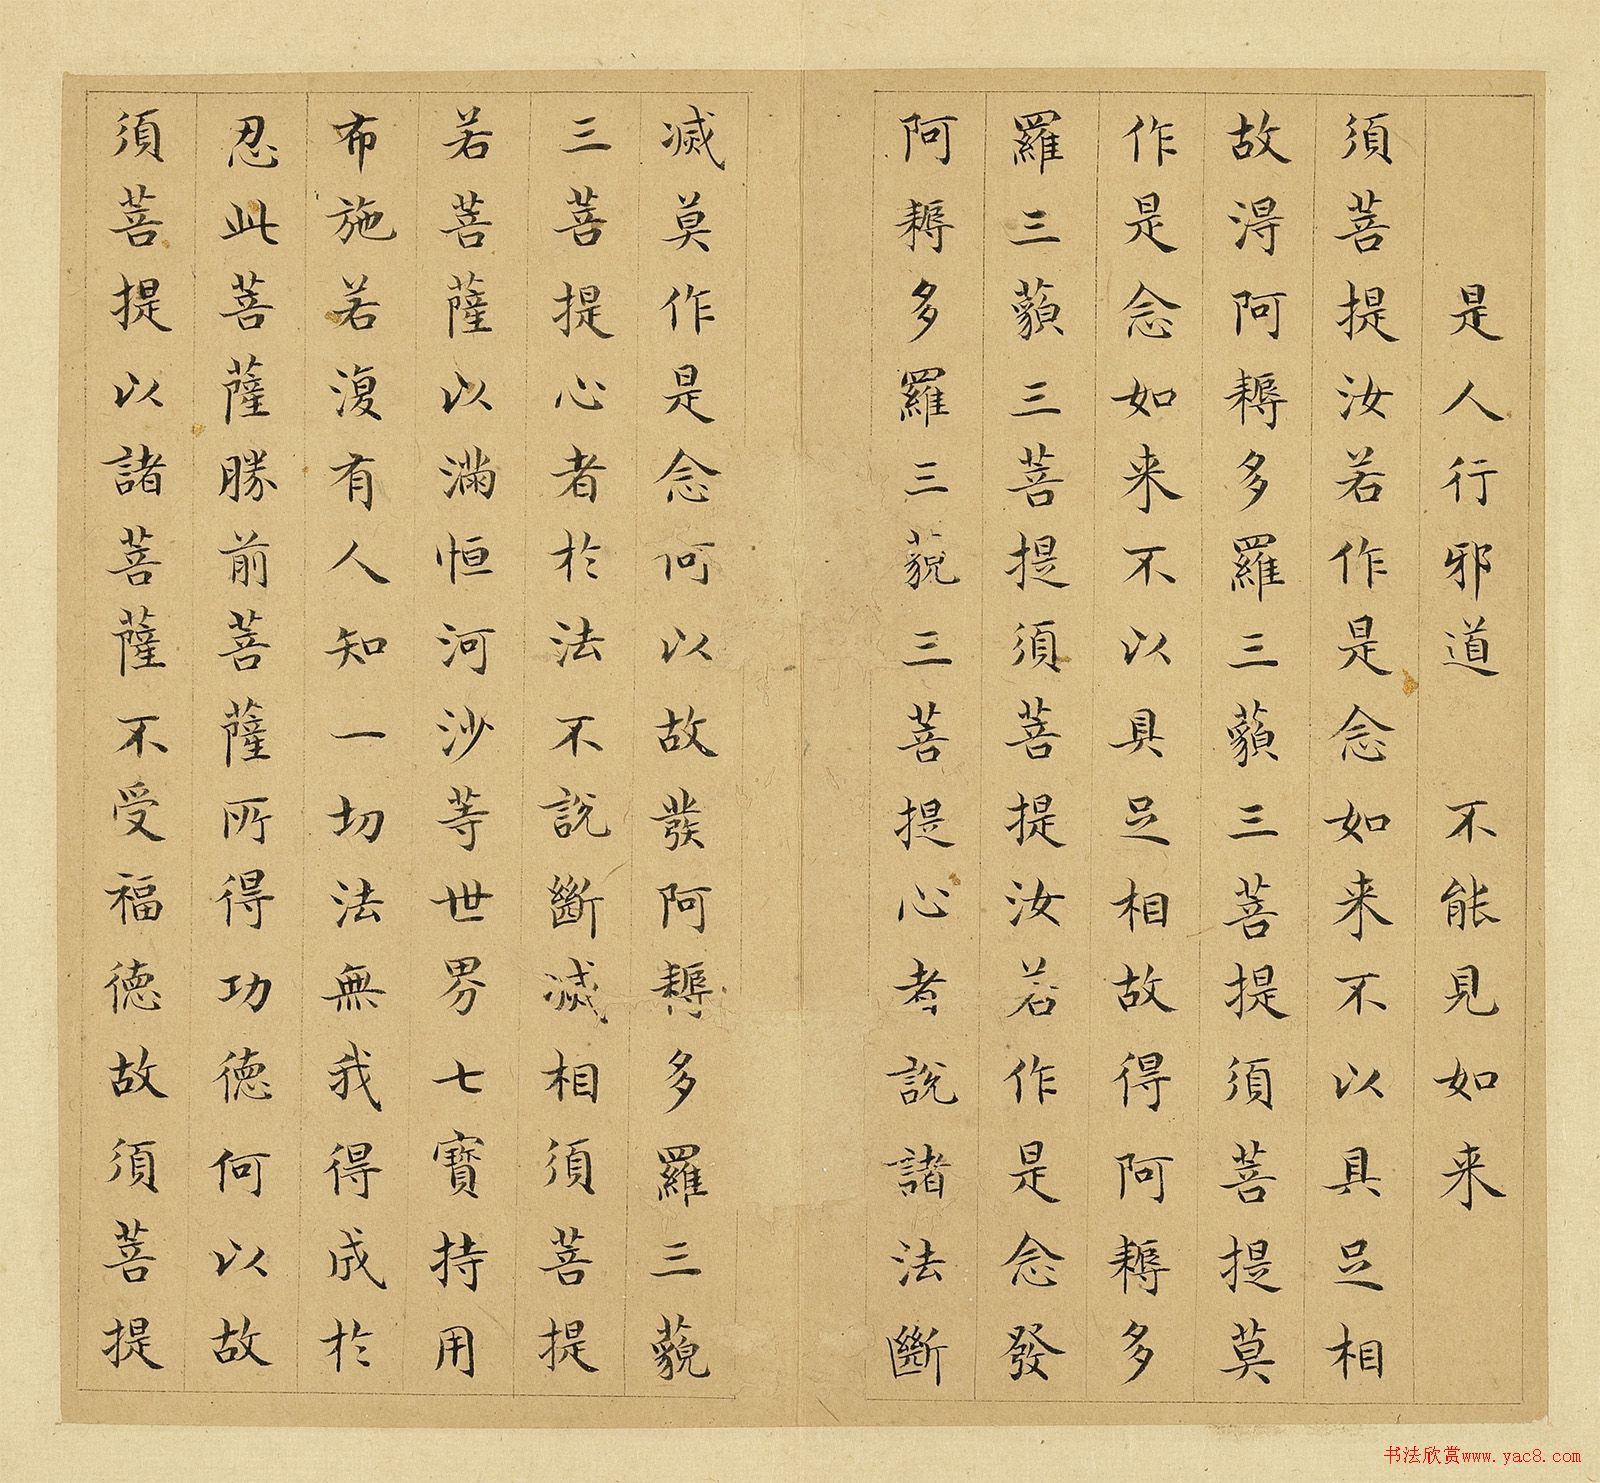 是人行邪道　不能見如来
須菩提汝若作是念如来不以具足相
故淂阿耨多羅三藐三菩提須菩提莫
作是念如来不以具足相故得阿耨多
羅三藐三菩提須菩提汝若作是念發
阿耨多羅三藐三菩提心者說諸法斷
滅莫作是念何以故發阿耨多羅三藐
三菩提心者於法不説斷滅相須菩提
若菩薩以滿恒河沙等世界七寶持用
布施若復有人知一切法無我得成於
忍此菩薩勝前菩薩所得功徳何以故
須菩提以諸菩薩不受福徳故須菩提
书法欣赏www.yac8.com